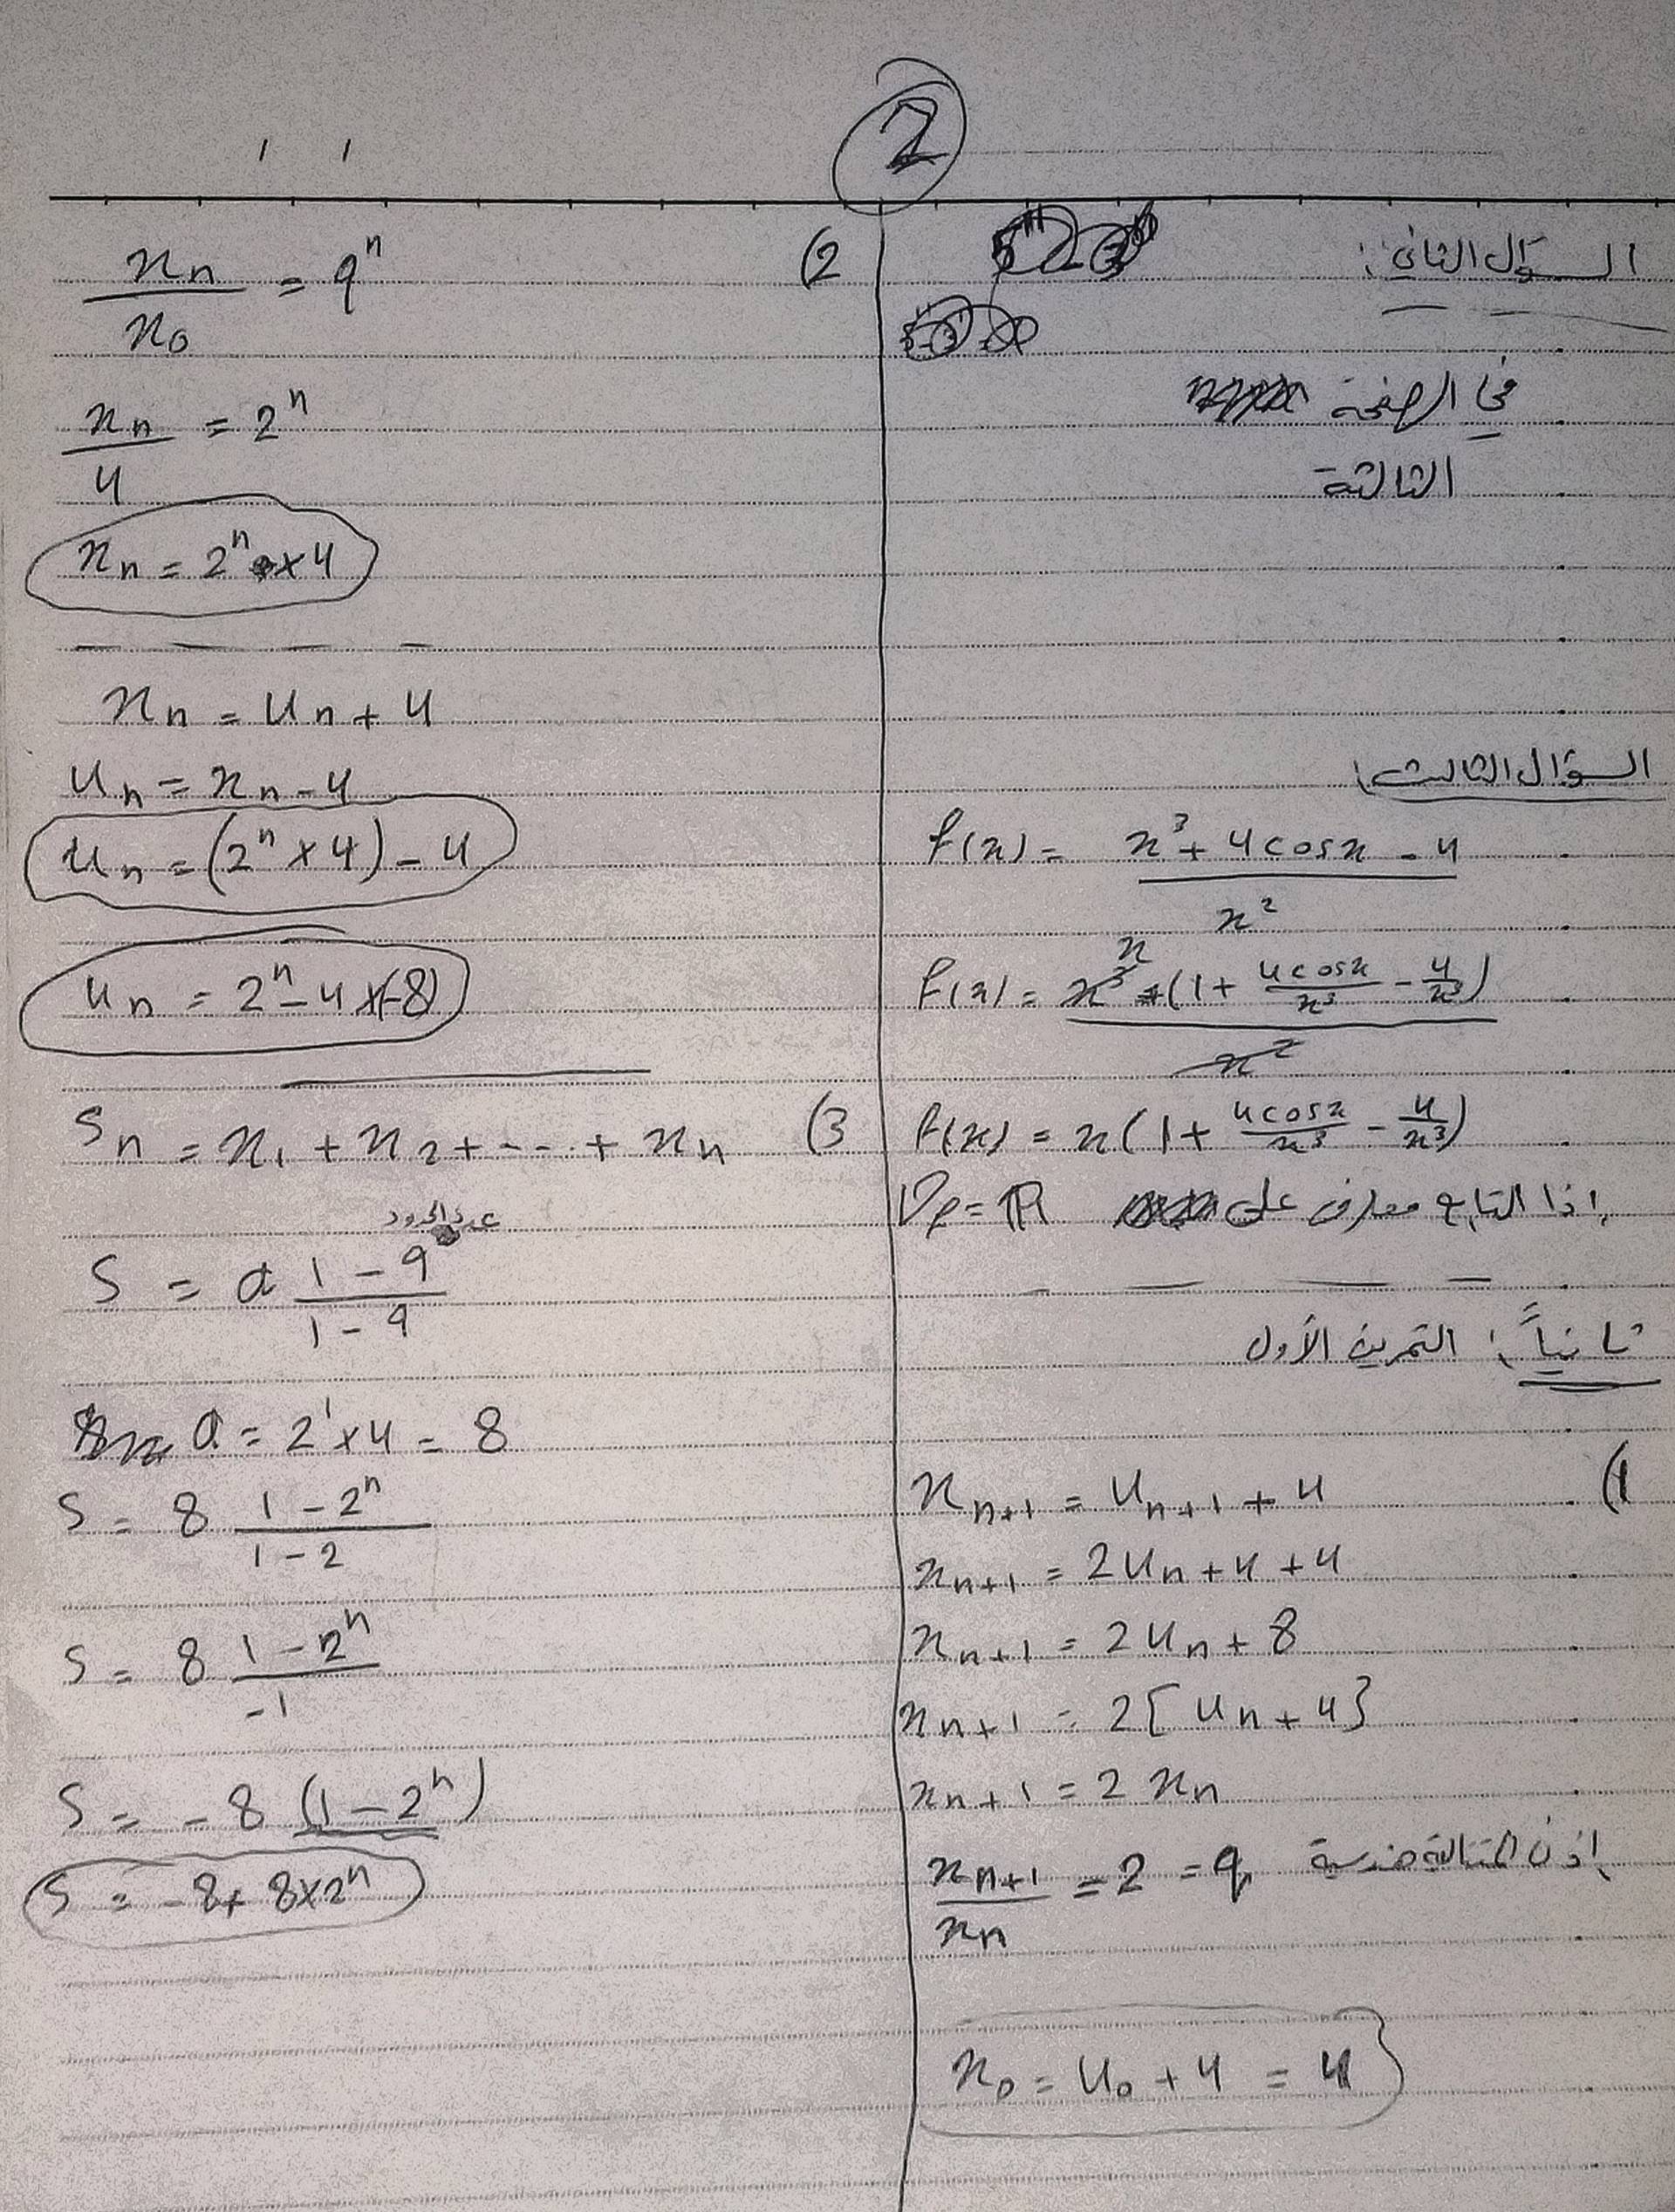 2
السؤال الثاني:
في الصفحة
الثالثة
السؤال الثالث:
f(x) = x³ + 4cosx - 4 / x²
f(x) = x³ (1 + 4cosx/x³ - 4/x³) / x²
x
f(x) = x(1 + 4cosx/x³ - 4/x³)
اذا التابع معارف على D_f = ℝ
ثانياً: التمرين الأول
(1
x_{n+1} = u_{n+1} + 4
x_{n+1} = 2u_n + 4 + 4
x_{n+1} = 2u_n + 8
x_{n+1} = 2[u_n + 4]
x_{n+1} = 2 x_n
x_{n+1} / x_n = 2 = q إذن المتتالية هندسية
x_0 = u_0 + 4 = 4
(2
x_n / x_0 = q^n
x_n / 4 = 2^n
x_n = 2^n × 4
x_n = u_n + 4
u_n = x_n - 4
u_n = (2^n × 4) - 4
u_n = 2^n - 4 × (-8)
(3
S_n = x_1 + x_2 + ---- + x_n
عدد الحدود
S = a 1 - q / 1 - q
a = 2^1 × 4 = 8
S = 8 1 - 2^n / 1 - 2
S = 8 1 - 2^n / -1
S = -8 (1 - 2^n)
S = -8 + 8×2^n